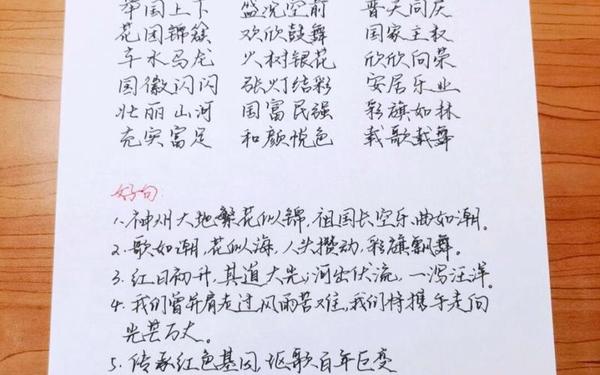 举国上下 盛况空前 普天同庆
花团锦簇 欢欣鼓舞 国家主权
车水马龙 火树银花 欣欣向荣
国徽闪闪 张灯结彩 安居乐业
壮丽山河 国富民强 彩旗如林
充实富足 和颜悦色 载歌载舞
好句
1、神州大地繁花似锦,祖国长空乐曲如潮。
2、歌如潮,花似海,人头攒动,彩旗飘舞。
3、红日初升,其道大光;河出伏流,一泻汪洋。
4、我们曾并肩走过风雨苦难,我们将携手走向
光芒万丈。
5、传承红色基因,讴歌百年巨变